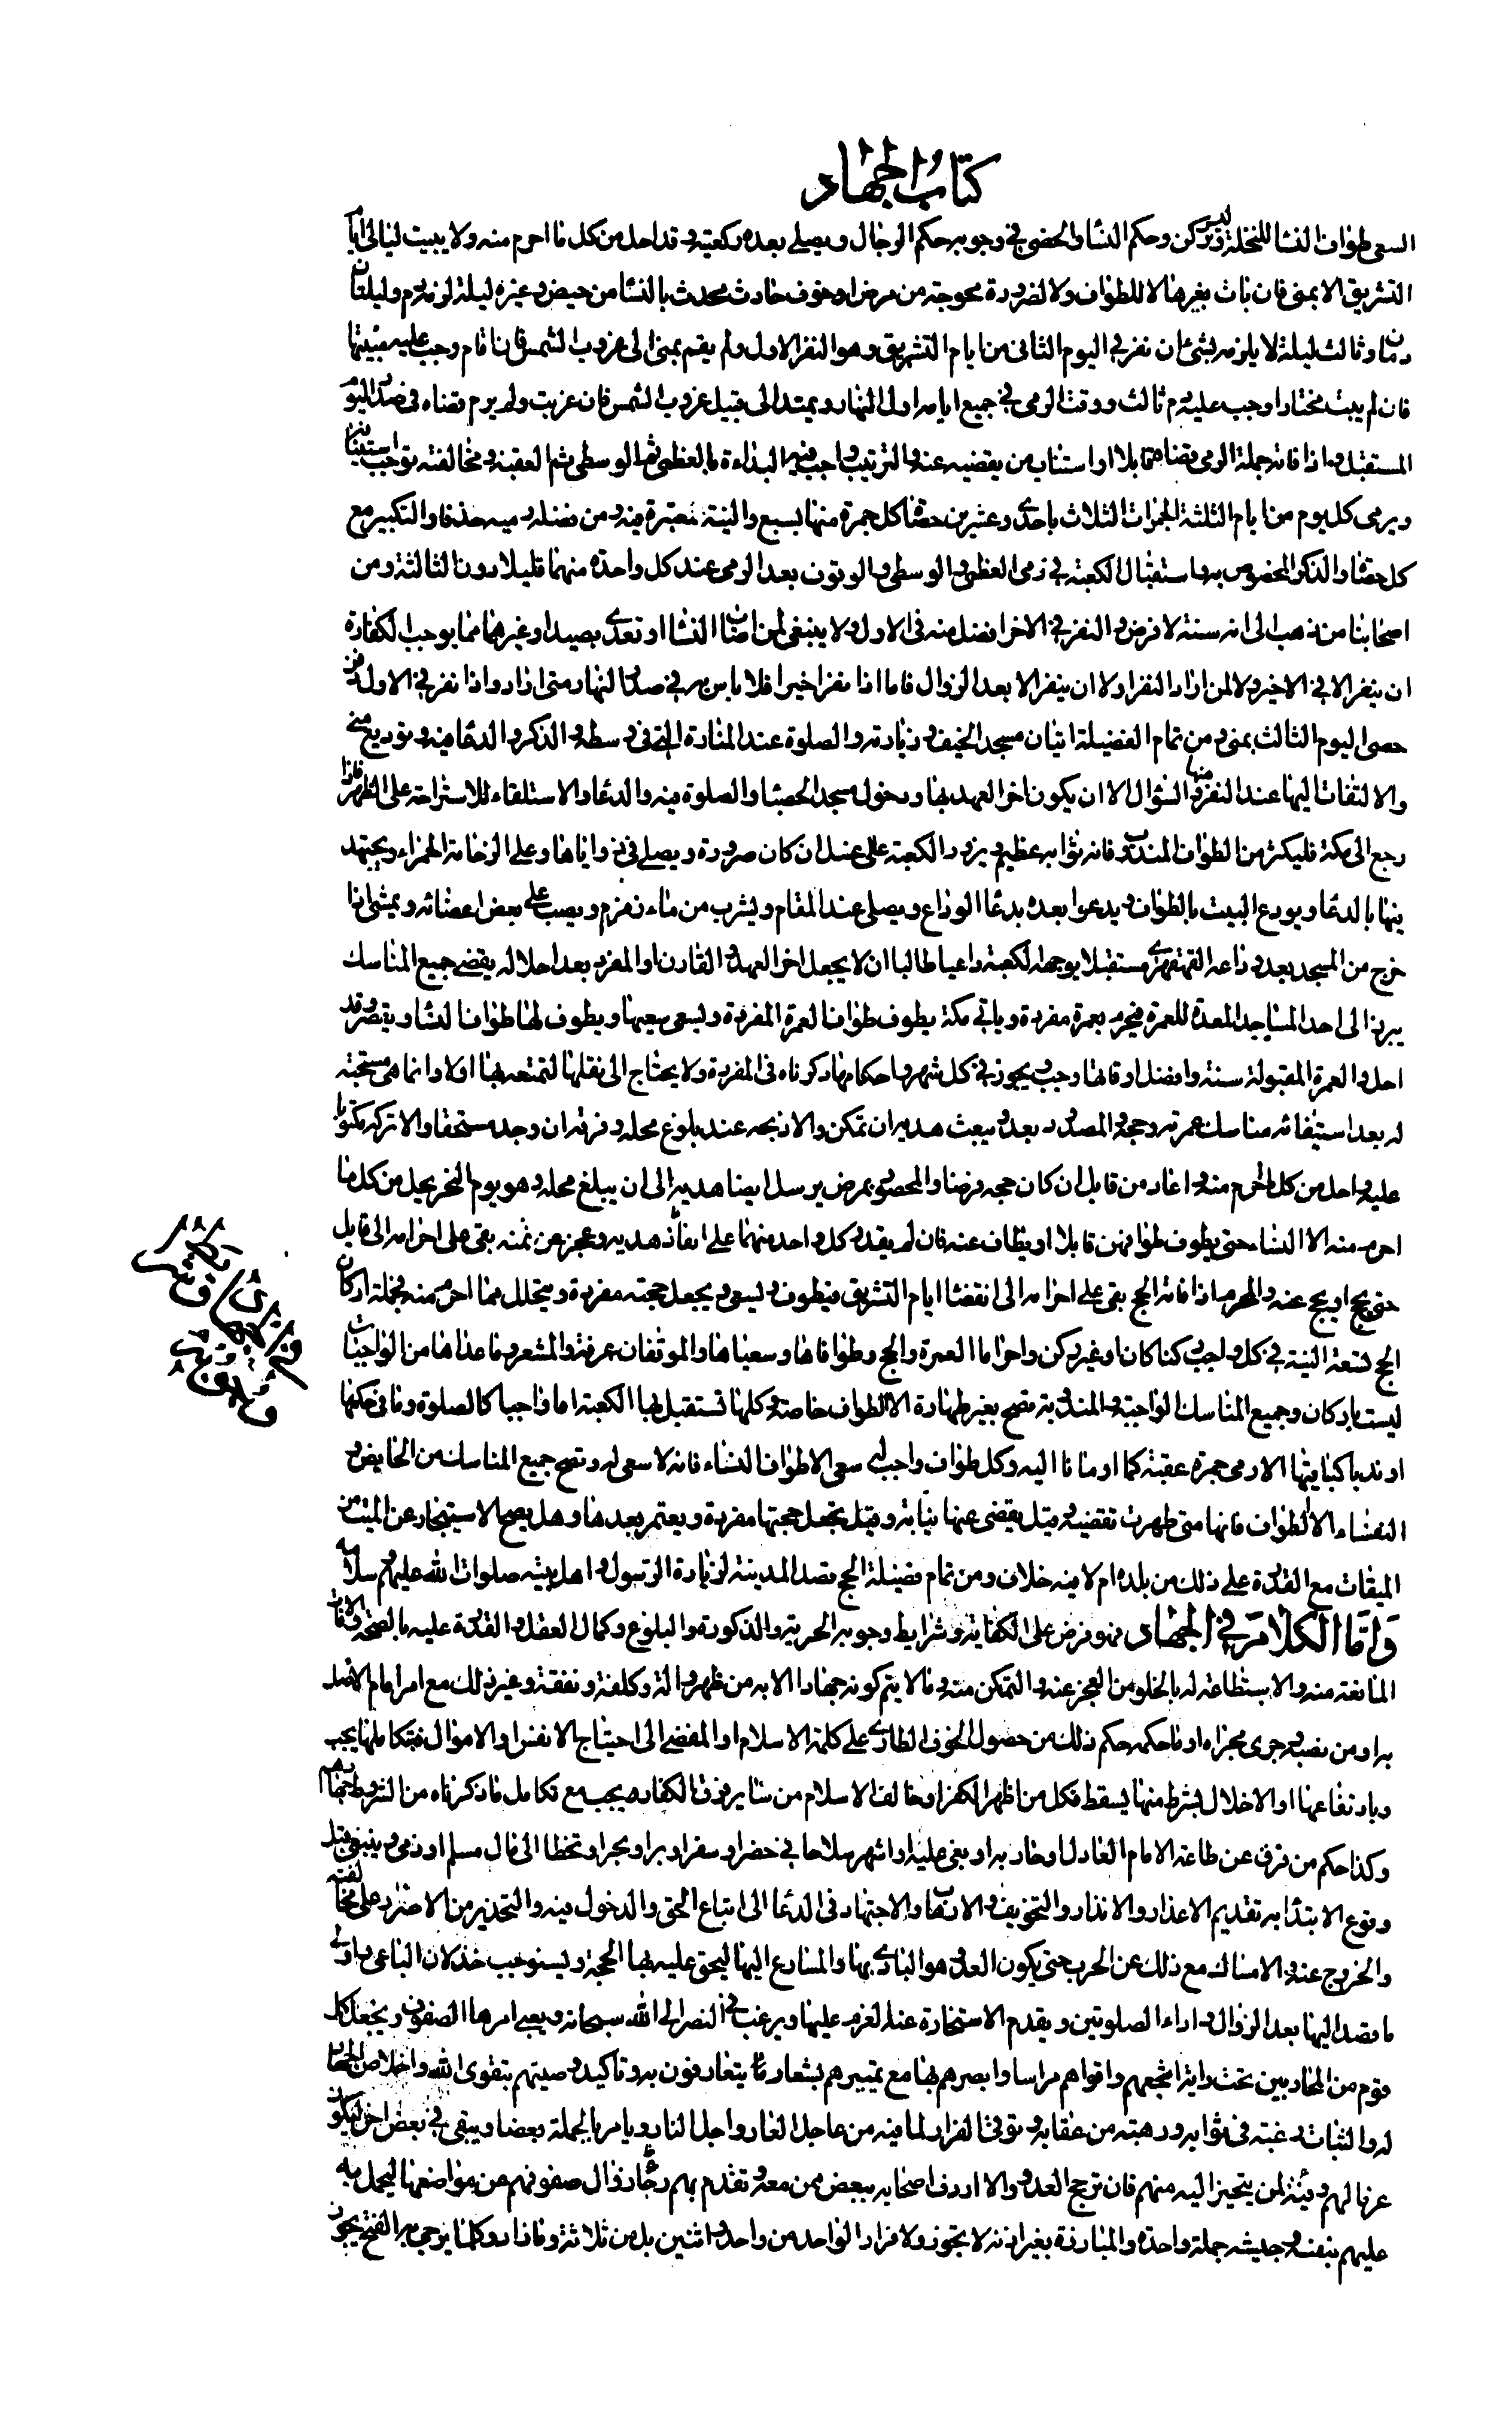 كتاب الجهاد
السعى طواف النسا للتحلة وليس بركن وحكم النسا والخصى فى وجوبه حكم الرجال ويصلى بعده ركعتيه وقد احل من كل ما احرم منه ولا يبيت ليالى ايام
التشريق الا بمنى فان بات بغيرها لا للطواف ولا لضرورة محوجة من مرض او خوف حادث محدث بالنسا من حيض وغيره ليلة لزمه دم وليلتان
دمان وثالث ليلة لا يلزمه بشئ ان نفر فى اليوم الثانى من ايام التشريق وهو النفر الاول ولم يقم بمنى الى غروب الشمس فان اقام وجب عليه مبيتها
فان لم يبت مختارا وجب عليه دم ثالث ووقت الرمى فى جميع ايامه اول النهار ويمتد الى قبيل غروب الشمس فان غربت ولم يرم قضاه فى صدر اليوم
المستقبل واذا فاته جملة الرمى قضاه قابلا او استناب من يقضيه عنه والترتيب واجب فيه البداءة بالعظمى ثم الوسطى ثم العقبة ومخالفته توجب استينافه
ويرمى كل يوم من ايام الثلثة الجمرات الثلاث باحدى وعشرين حصاة كل جمرة منها بسبع والنية معتبرة فيه ومن فضله رميه حذفا والتكبير مع
كل حصاة والذكر المخصوص به واستقبال الكعبة فى رمى العظمى والوسطى والوقوف بعد الرمى عند كل واحدة منهما قليلا دون الثالثة ومن
اصحابنا من ذهب الى انه سنة لا فرض والنفر فى الاخر افضل منه فى الاول ولا ينبغى لمن اصاب النسا او تعدى بصيد او غيرهما مما يوجب الكفارة
ان ينفر الا فى الاخير ولا لمن اراد النفر اولا ان ينفر الا بعد الزوال فاما اذا نفر اخيرا فلا باس به فى صدر النهار متى اراد واذا نفر فى الاول دفن
حصى اليوم الثالث بمنى ومن تمام الفضيلة اتيان مسجد الخيف وزيارته والصلوة عند المنارة التى فى وسطه والذكر والدعا فيه وتوديع منى
والالتفات اليها عند النفر منها والسؤال الا ان يكون اخر العهد بها ودخول مسجد الحصبا والصلوة فيه والدعا والاستلقاء للاستراحة على الظهر فاذا
رجع الى مكة فليكثر من الطواف المندوب فانه ثوابه عظيم ويزور الكعبة على غسل ان كان صرورة ويصلى فى زواياها وعلى الرخامة الحمراء ويجتهد
فيها بالدعا ويودع البيت بالطواف ويدعوا بعده بدعا الوداع ويصلى عند المقام ويشرب من ماء زمزم ويصب على بعض اعضائه ويمشى اذا
خرج من المسجد بعد وداعه القهقرى مستقبلا بوجهه الكعبة داعيا طالبا ان لا يجعل اخر العهد والقارن او المفرد بعد احلاله يقضى جميع المناسك
يبرز الى احد المساجد المعدة للعمرة فيحرم بعمرة مفردة وياتى مكة يطوف طواف العمرة المفردة ويسعى سعيها ويطوف لها طواف النسا ويقصر وقد
احل والعمرة المقبولة سنة وافضل اوقاتها رجب ويجوز فى كل شهر واحكامها ذكرناه فى المفردة ولا يحتاج الى نقلها لتمتعه بها اولا وانما هى مستحبة
له بعد استيفائه مناسك عمرته وحجه والمصدود بعدو يبعث هديه ان تمكن والا ذبحه عند بلوغ محله وفرقه ان وجد مستحقا والا تركه مكتوبا
عليه واحل من كل ما احرم منه واعاد من قابل ان كان حجه فرضا والمحصور بمرض يرسل ايضا هديه الى ان يبلغ محله وهو يوم النحر يحل من كل ما
احرم منه الا النساء حتى يطوف طوافهن قابلا او يطاف عنه فان لم يقدر كل واحد منهما على انفاذ هديه وعجز عن ثمنه بقى على احرامه الى قابل
حتى يحج او يحج عنه والمحرم اذا فاته الحج بقى على احرامه الى انقضا ايام التشريق فيطوف ويسعى ويجعل حجته مفردة ويتحلل مما احرم منه فجملة اركان
الحج لمتعة النية فى كل واجب ركنا كان او غير ركن واحراما العمرة والحج وطوافاها وسعياها والموقفان عرفة والمشعر وما عداها من الواجبات
ليست باركان وجميع المناسك الواجبة والمندوبة تصح بغير طهارة الا الطواف خاصة وكلها تستقبل بها الكعبة اما واجبا كالصلوة وما فى حكمها
او ندبا كباقيها الا رمى جمرة عقبة كما اومانا اليه وكل طواف واجب له سعى الا طواف النساء فانه لا سعى له وتصح جميع المناسك من الحايض و
النفساء الا الطواف فانها متى طهرت تقضيه وقيل يقضى عنها نيابة وقيل تجعل حجتها مفردة ويعتمر بعدها وهل يصح الاستيجار عن الميت من
الميقات مع القدرة على ذلك من بلده ام لا فيه خلاف ومن تمام فضيلة الحج قصد المدينة لزيارة الرسول واهل بيته صلوات الله عليهم وسلامه
واما الكلام فى الجهاد فهو فرض على الكفاية وشرايط وجوبه الحرية والذكورة والبلوغ وكمال العقل والقدرة عليه بالصحة والافات
المانعة منه والاستطاعة له بالخلو من العجز عنه والتمكن منه وما لا يتم كونه جهادا الا به من ظهر والة وكلفة ونفقة وغير ذلك مع امر امام الاصل
به او من نصبه وجرى مجراه او ما حكمه حكم ذلك من حصول الخوف الطارى على كلمة الاسلام او المفضى الى احتياج الانفس او الاموال فبتكاملها يجب
وبارتفاعها او الاخلال بشرط منها يسقط فكل من اظهر الكفر او خالف الاسلام من ساير فرق الكفار يجب مع تكامل ما ذكرناه من الشروط جهادهم
وكذا حكم من مرق عن طاعة الامام العادل او حاربه او بغى عليه او اشهر سلاحا فى حضر او سفر او بر او بحر او تخطا الى مال مسلم او ذمى وينبغى قبل
وقوع الابتدا به تقديم الاعذار والانذار والتخويف والارهاب والاجتهاد فى الدعا الى اتباع الحق والدخول فيه والتحذير من الاصرار على مخالفته
والخروج عنه والامساك مع ذلك عن الحرب حتى يكون العدو هو البادى بها والمسارع اليها ليحق عليه بها الحجة ويستوجب خذلان الباغى واولى
ما قصد اليها بعد الزوال واداء الصلوتين ويقدم الاستخارة عند العزم عليها ويرغب فى النصر الى الله سبحانه ويعبى امرها الصفوف ويجعل كل
قوم من المحاربين تحت راية اشجعهم واقواهم مراسا وابصرهم بها مع تمييزهم بشعار ما يتعارفون به وتاكيد وصيتهم بتقوى الله واخلاص الجهاد
له والثبات رغبة فى ثوابه ورهبة من عقابه وتوقى الفرار لما فيه من عاجل العار واجل النار ويامر بالحملة بعضا ويبقى فى بعض اخر ليكون
عزما لهم وفئة لمن يتحيز اليه منهم فان تزحزح العدو والا اردف اصحابه ببعض ممن معه وتقدم بهم رجاء زوال صفوفهم عن مواضعها ليحمل به
عليهم بنفسه وجيشه جملة واحدة والمبارزة بغير اذنه لا تجوز ولا فرار الواحد من واحد واثنين بل من ثلاثة وما زاد وكلما يرجى به الفتح يجوز